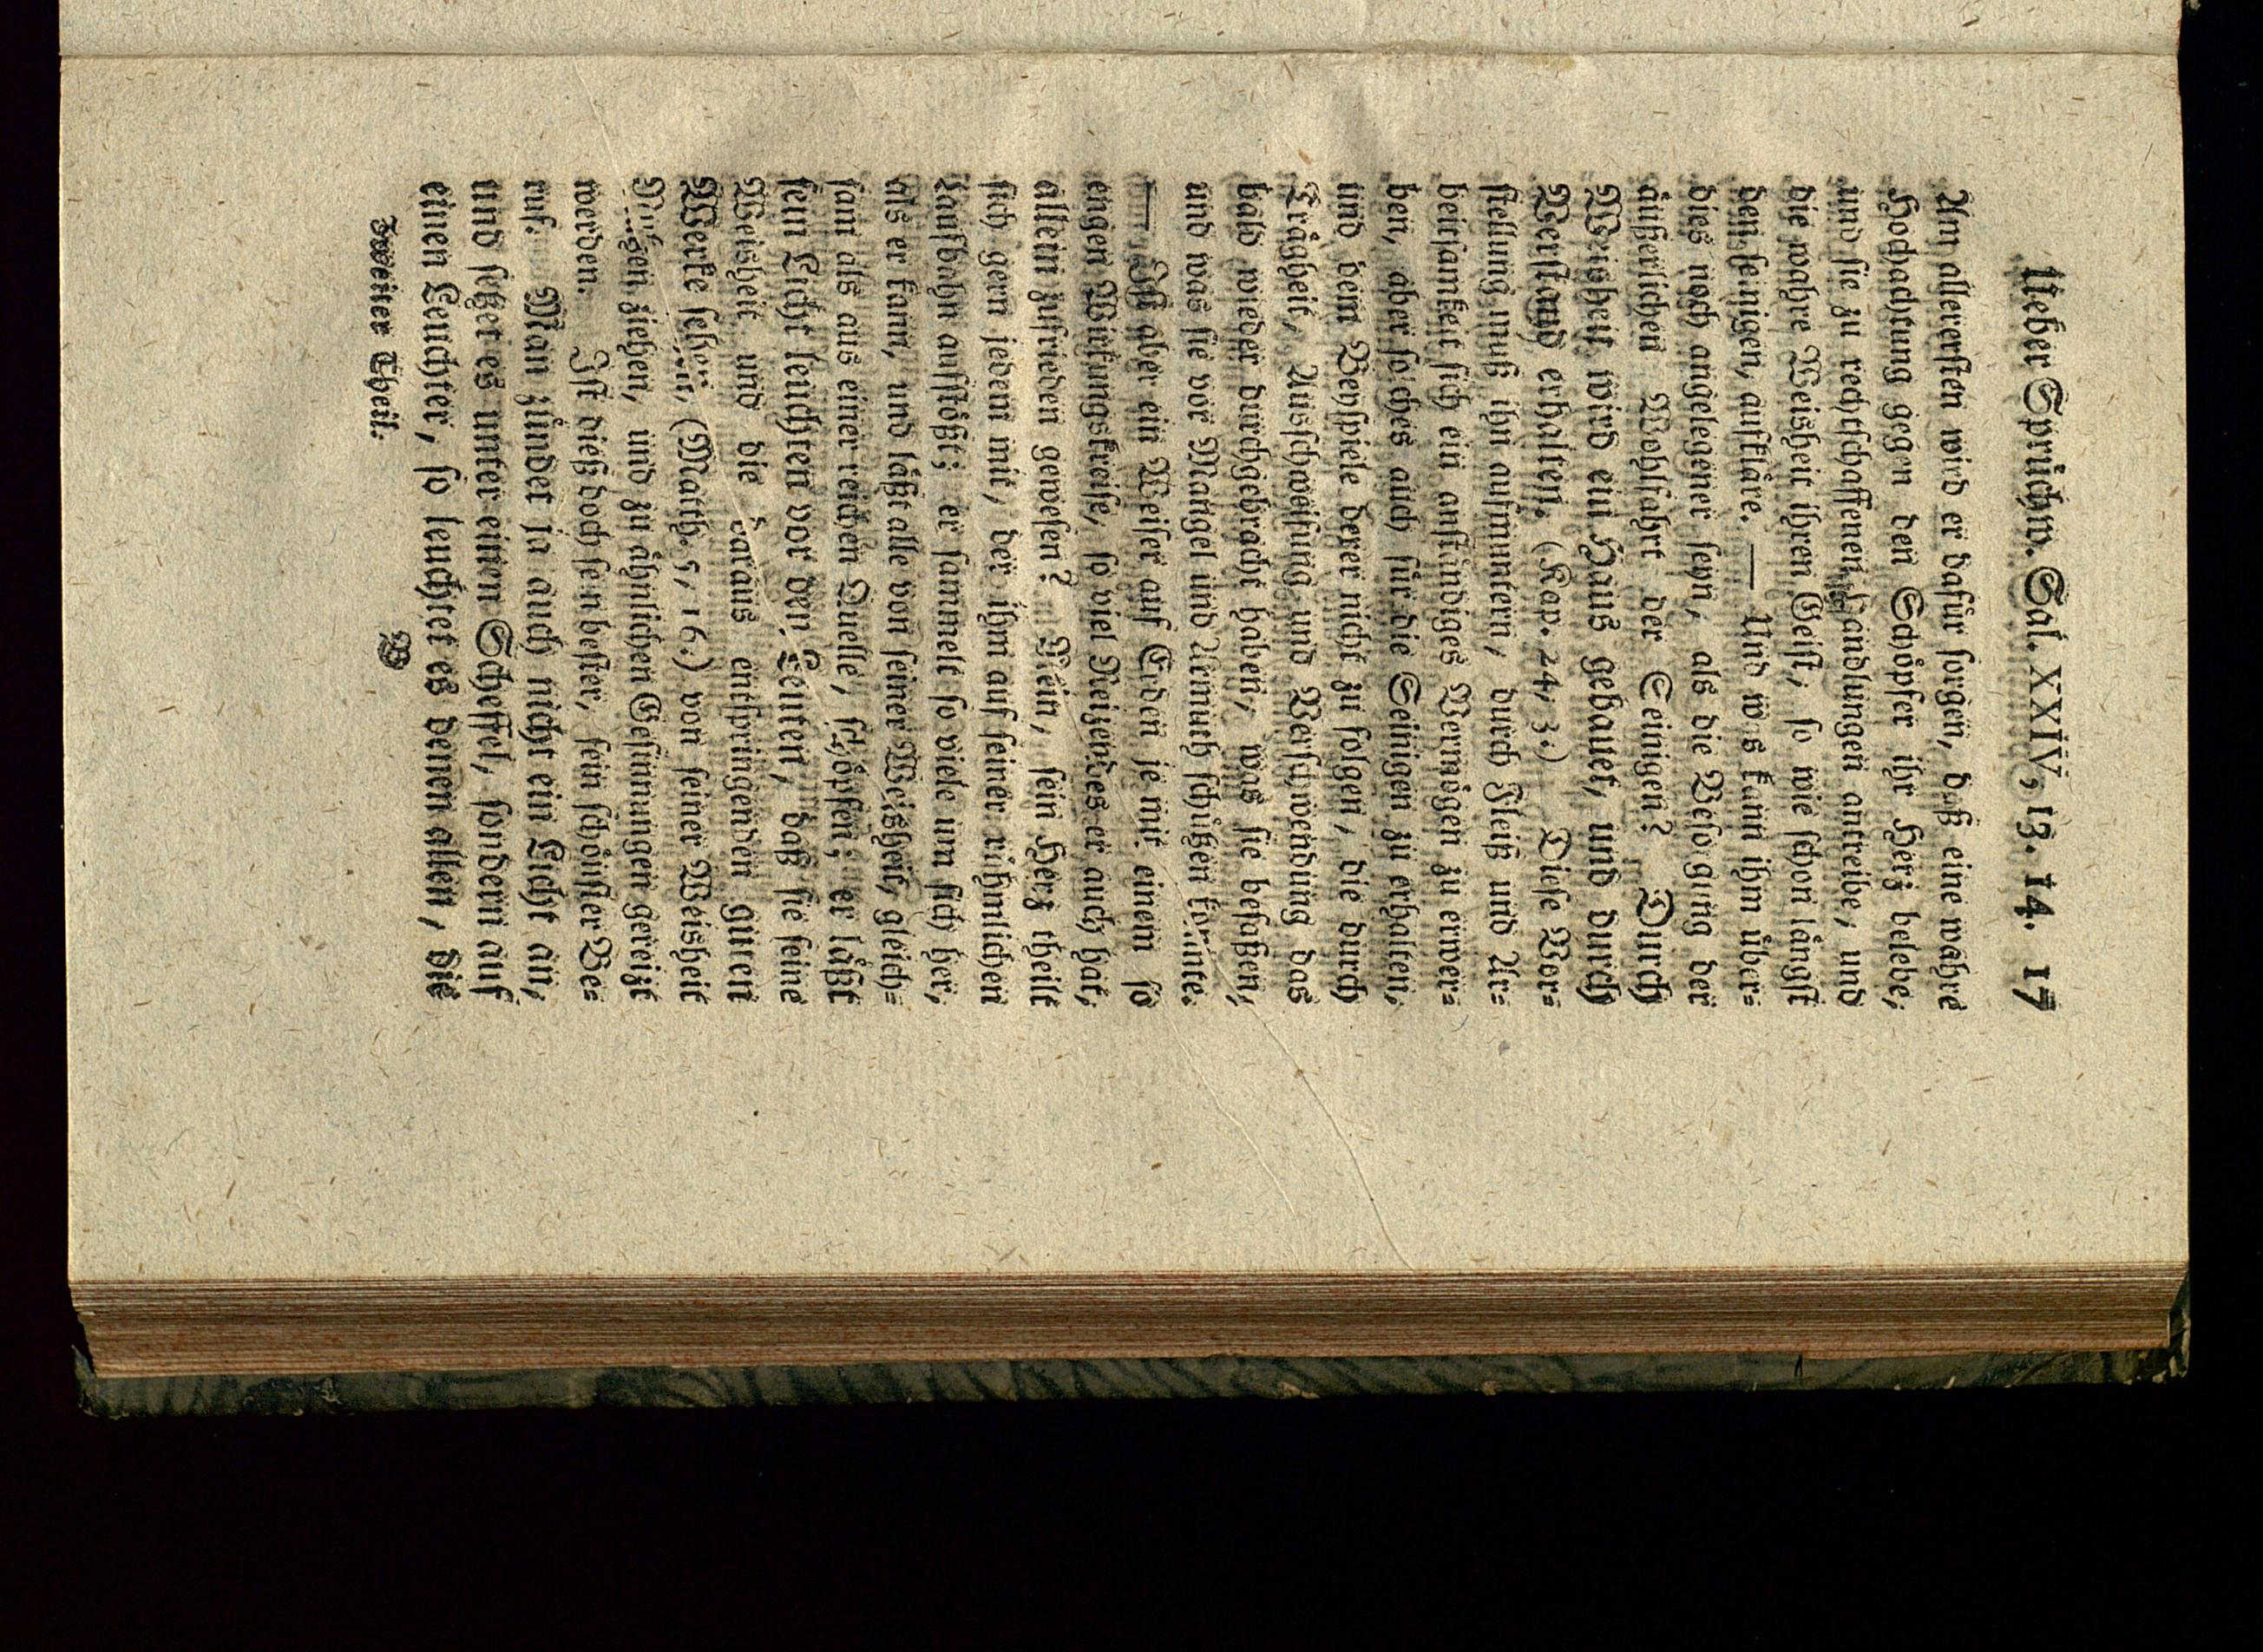 Ueber Sprüchm. Sal. XXIV, 13. 14. 17
Am allerersten wird er dafür sorgen, daß eine wahre
Hochachtung gegen den Schöpfer ihr Herz belebe,
und sie zu rechtschaffenen Handlungen antreibe, und
die wahre Weisheit ihren Geist, so wie schon längst
den seinigen, aufkläre. — Und was kann ihm über=
dies noch angelegener seyn, als die Besorgung der
äußerlichen Wohlfahrt der Seinigen? Durch
Weisheit wird ein Haus gebauet, und durch
Verstand erhalten. (Kap. 24, 3.) Diese Vor=
stellung muß ihn aufmuntern, durch Fleiß und Ar=
beitsamkeit sich ein anständiges Vermögen zu erwer=
ben, aber solches auch für die Seinigen zu erhalten,
und dem Beyspiele derer nicht zu folgen, die durch
Trägheit, Ausschweifung und Verschwendung das
bald wieder durchgebracht haben, was sie besaßen,
und was sie vor Mangel und Armuth schützen konnte.
— Ist aber ein Weiser auf Erden je mit einem so
engen Wirkungskreise, so viel Reizendes er auch hat,
allein zufrieden gewesen? Nein, sein Herz theilt
sich gern jedem mit, der ihm auf seiner rühmlichen
Laufbahn aufstößt; er sammelt so viele um sich her,
als er kann, und läßt alle von seiner Weisheit, gleich=
sam als aus einer reichen Quelle, schöpfen; er läßt
sein Licht leuchten vor den Leuten, daß sie seine
Weisheit und die daraus entspringenden guten
Werke sehen, (Matth. 5, 16.) von seiner Weisheit
Nutzen ziehen, und zu ähnlichen Gesinnungen gereizt
werden. Ist dieß doch sein bester, sein schönster Be=
ruf. Man zündet ja auch nicht ein Licht an,
und setzet es unter einen Scheffel, sondern auf
einen Leuchter, so leuchtet es denen allen, die
Zweiter Theil. B